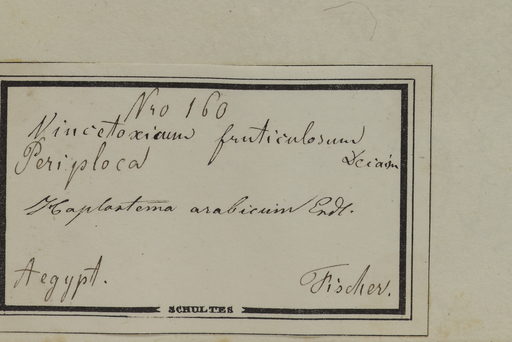 Nro 160
Vincetoxicum fruticulosum
Periploca Dciaisn
Haplostema arabicum Endl.
Aegypt. Fischer.
SCHULTES